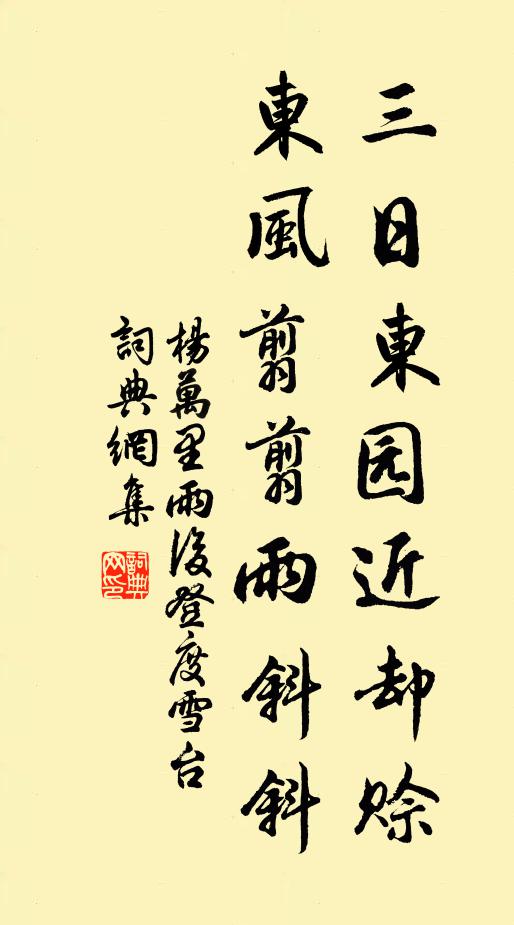 三日東园近却赊
東風翦翦雨斜斜
楊萬里雨後登度雪台
詞典網集
詞典
网印